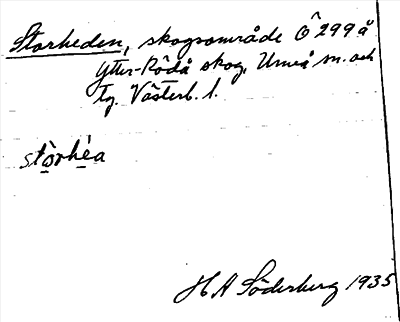 Storheden, skogsområde Ô 299 å
Ytter-Rödå skog, Umeå sn. och
tg. Västerb. l.
stòrhéa
H A Söderberg 1935